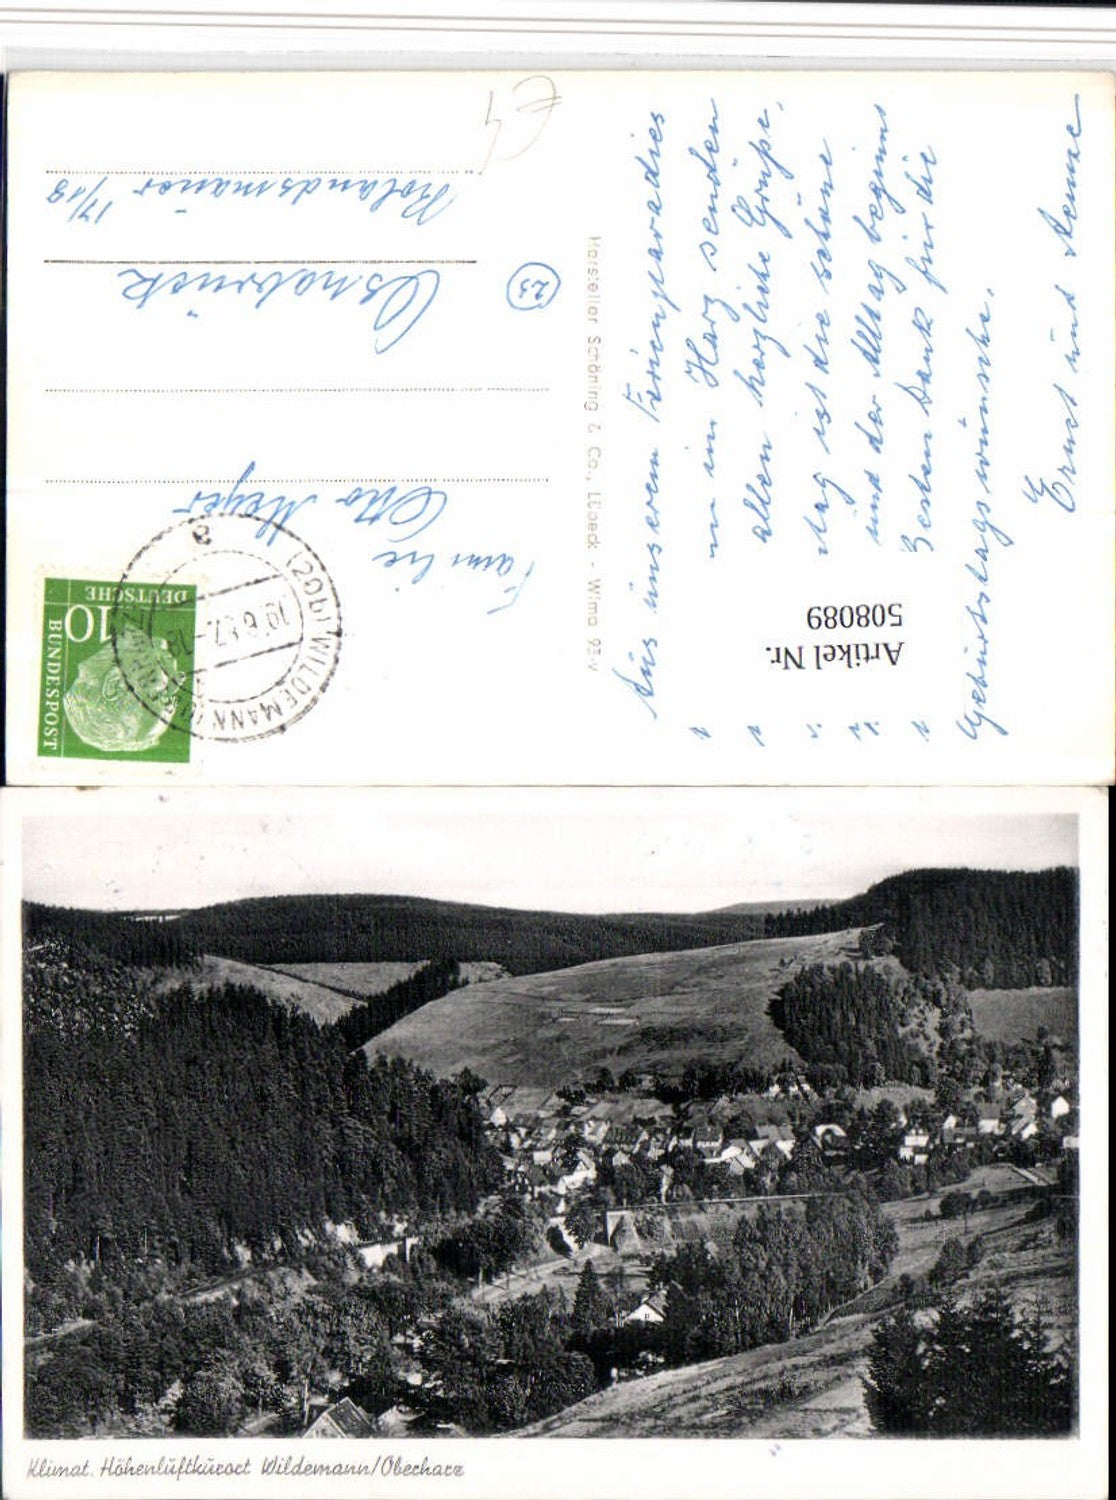 Aus unserem Ferienparadies
im Harz senden
allen herzliche Grüße.
tag ist die schöne
und der Alltag beginnt
Besten Dank für die
Geburtstagswünsche.
Ernst und Aenne
Hersteller Schöning & Co., Lübeck - Wima 93-v
Familie
Otto Meyer
(23)
Osnabrück
Rolandsmauer 17/18
€4
DEUTSCHE
BUNDESPOST
10
(20b) WILDEMANN
e
Artikel Nr.
508089
Klimat. Höhenluftkurort Wildemann/Oberharz